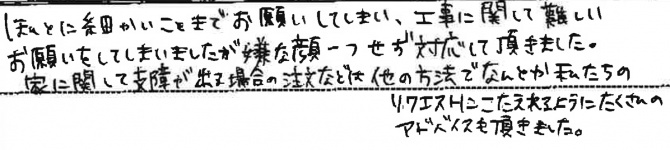 ほんとに細かいことまでお願いしてしまい、工事に関して難しい
お願いをしてしまいましたが嫌な顔一つせず対応して頂きました。
家に関して支障が出る場合の注文などは他の方法でなんとか私たちの
リクエストにこたえれるようにたくさんの
アドバイスも頂きました。